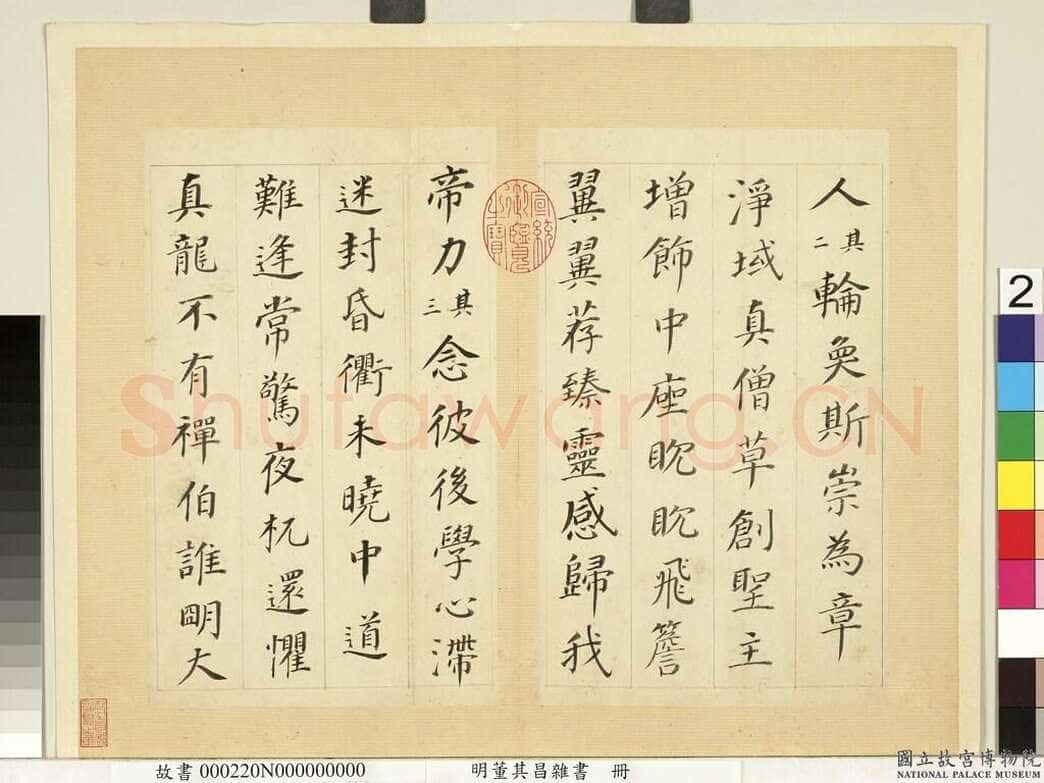 人其二輪奐斯崇為章
淨域真僧草創聖主
增飾中座眈眈飛簷
翼翼荐臻靈感歸我
帝力其三念彼後學心滯
迷封昏衢未曉中道
難逢常驚夜杌還懼
真龍不有禪伯誰明大
宣統御覽之寶
Shufawang.CN
2
故書 000220N000000000 明董其昌雜書 冊
國立故宮博物院
NATIONAL PALACE MUSEUM